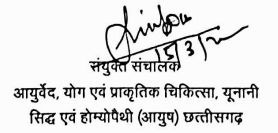 15/3/2
संयुक्त संचालक
आयुर्वेद, योग एवं प्राकृतिक चिकित्सा, यूनानी
सिद्ध एवं होम्योपैथी (आयुष) छत्तीसगढ़